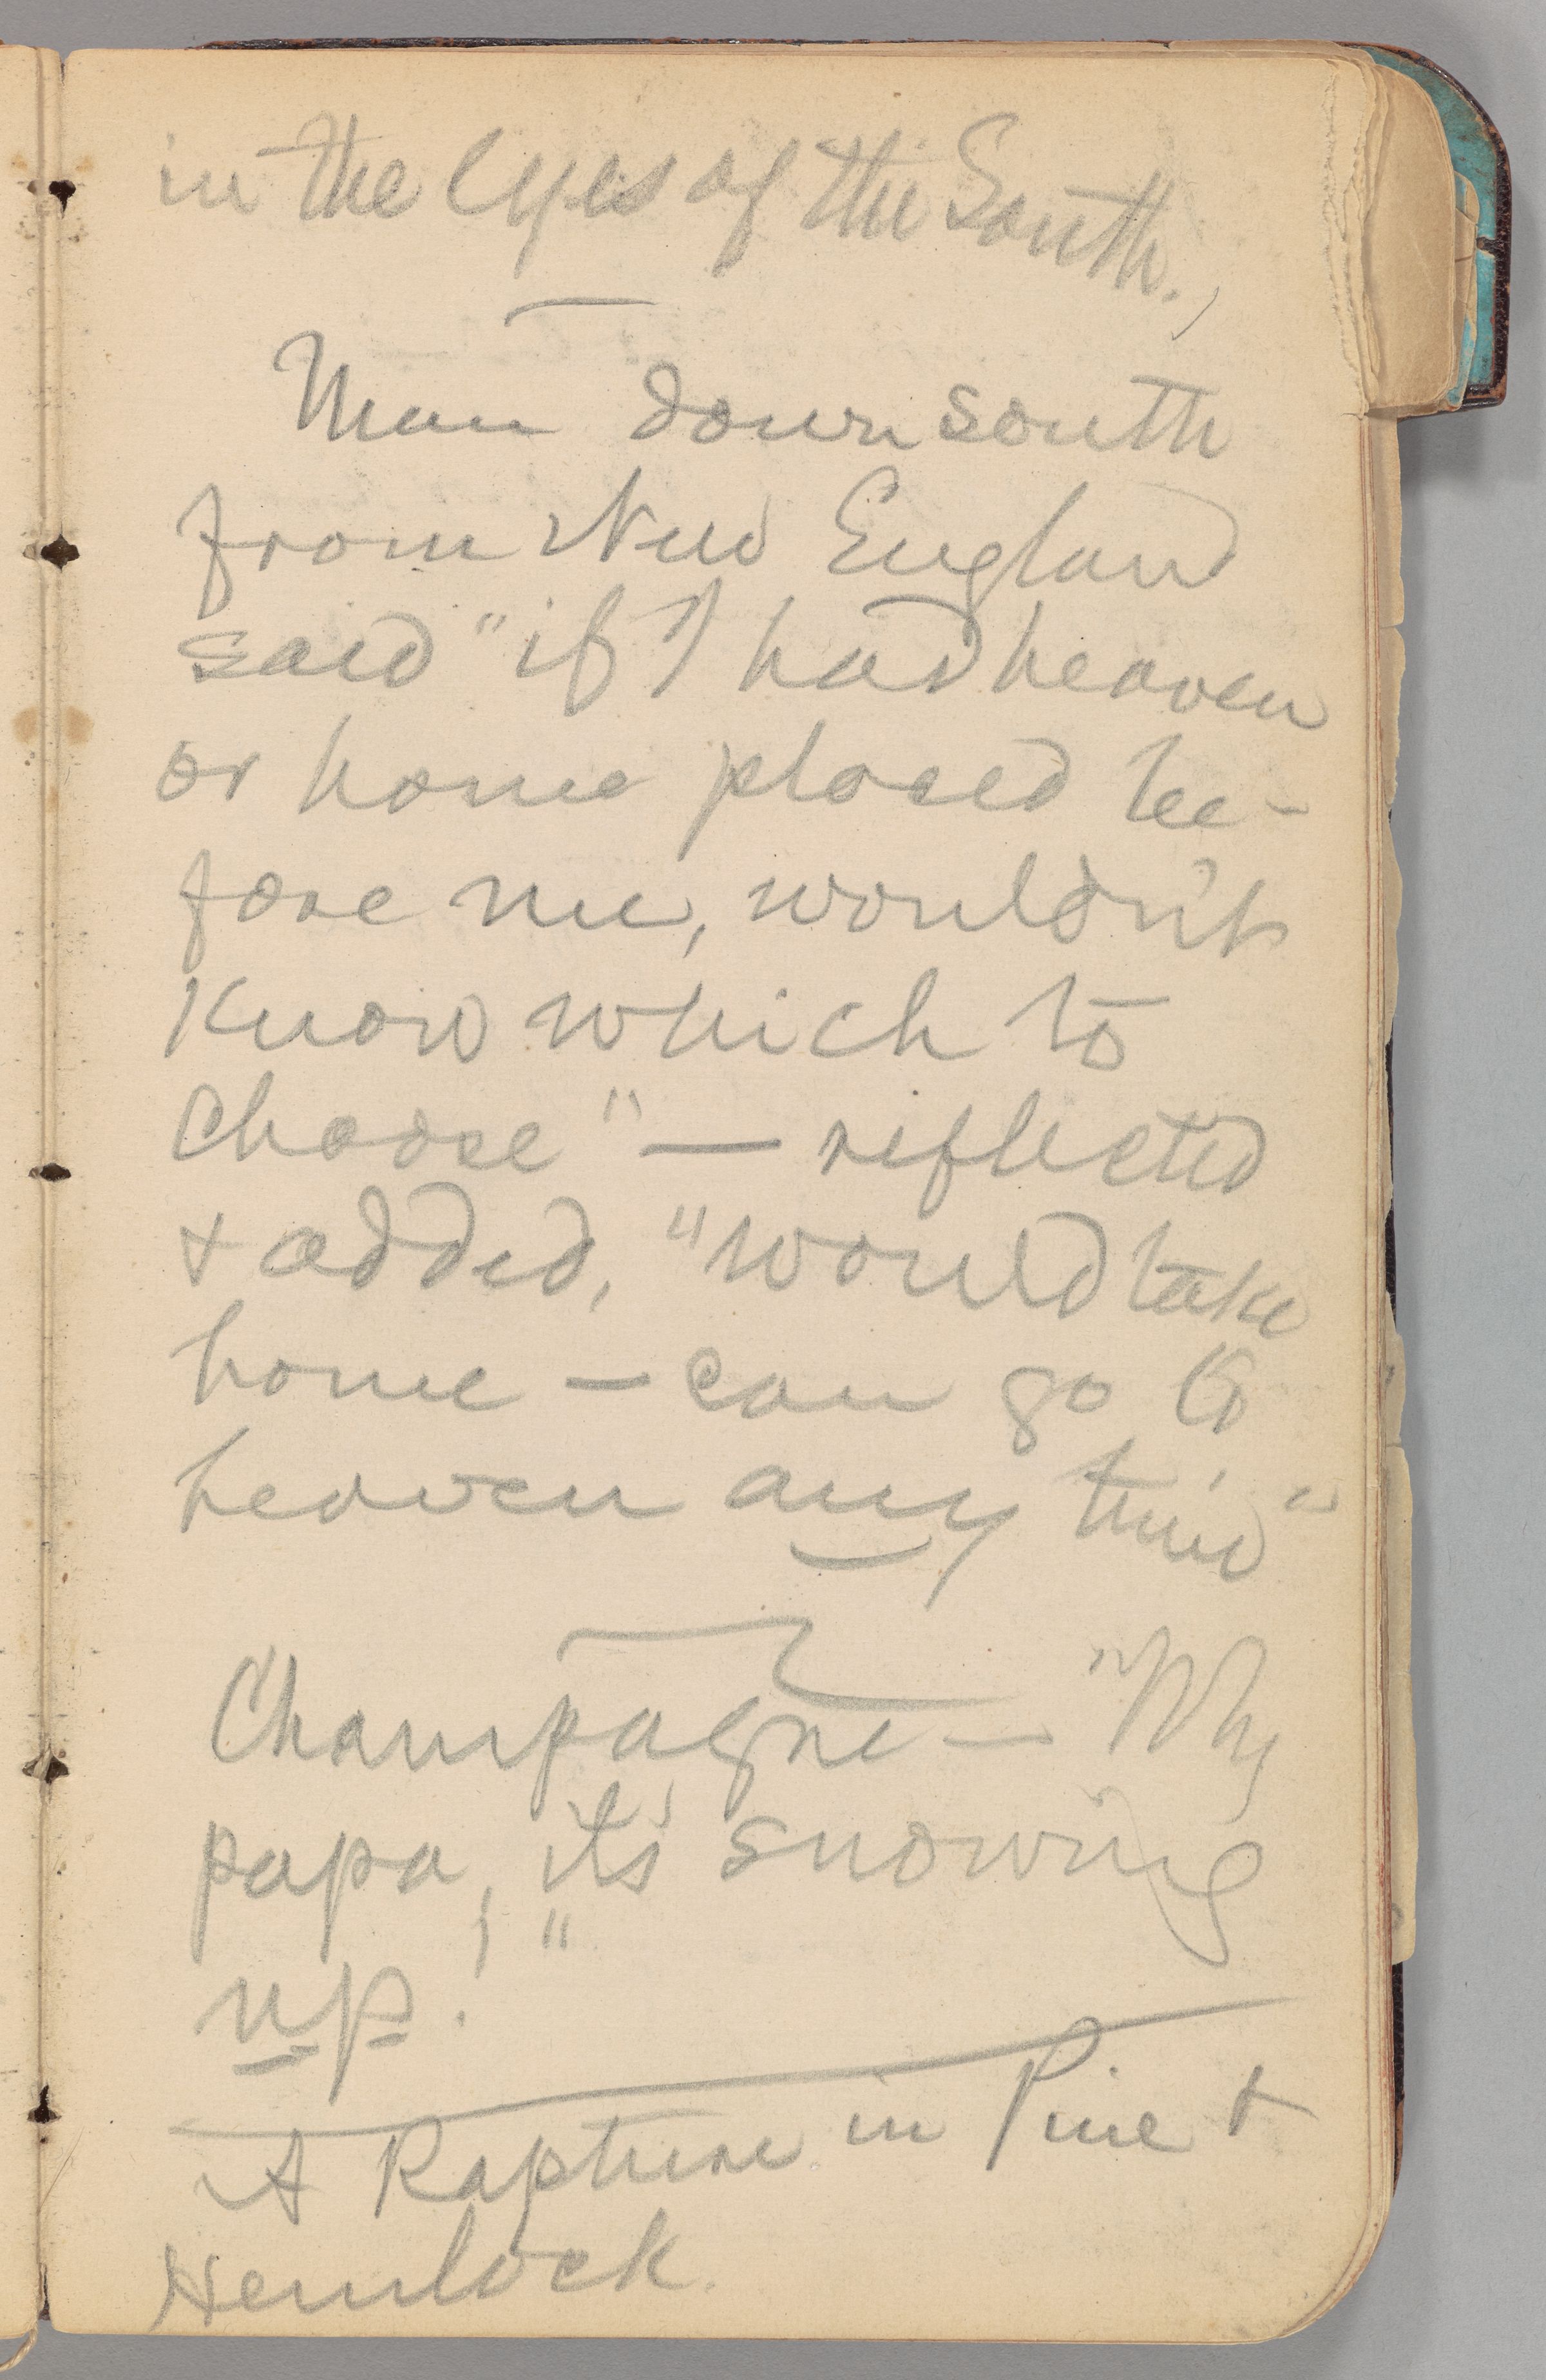 in the eyes of the South.)
Man down south
from New England
said "if I had heaven
or home placed be-
fore me, wouldn't
know which to
choose" — reflected
& added, "would take
home — can go to
heaven any time"
Champagne — "Why
papa, it's snowing
up!"
A Rapture in Pine &
Hemlock.